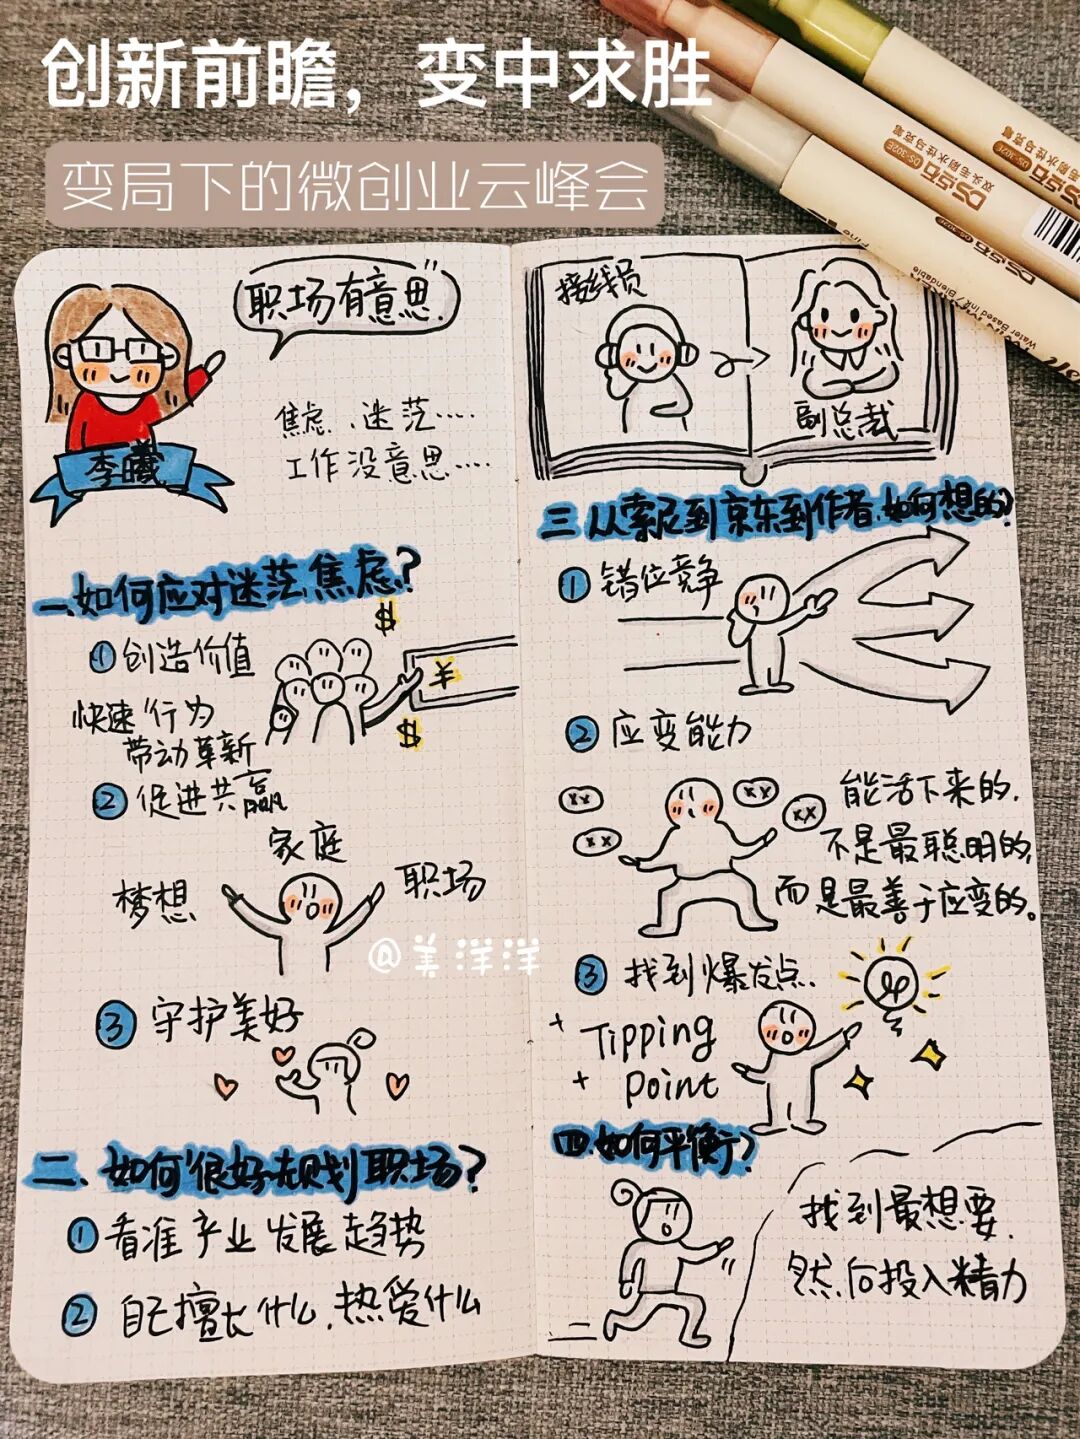 创新前瞻，变中求胜
变局下的微创业云峰会
职场有意思
焦虑、迷茫……
工作没意思……
李曦
一、如何应对迷茫、焦虑？
①创造价值
快速行为
带动革新
②促进共赢
家庭
梦想
职场
③守护美好
二、如何很好规划职场？
①看准产业发展趋势
②自己擅长什么，热爱什么
接线员
副总裁
三、从索尼到京东到作者，如何想的？
①错位竞争
②应变能力
能活下来的，
不是最聪明的，
而是最善于应变的。
③找到爆发点
Tipping
Point
四、如何平衡？
找到最想要，
然后投入精力
@美洋洋
双头毛刷水性马克笔
DS-302E
Water Based Ink / Blendable